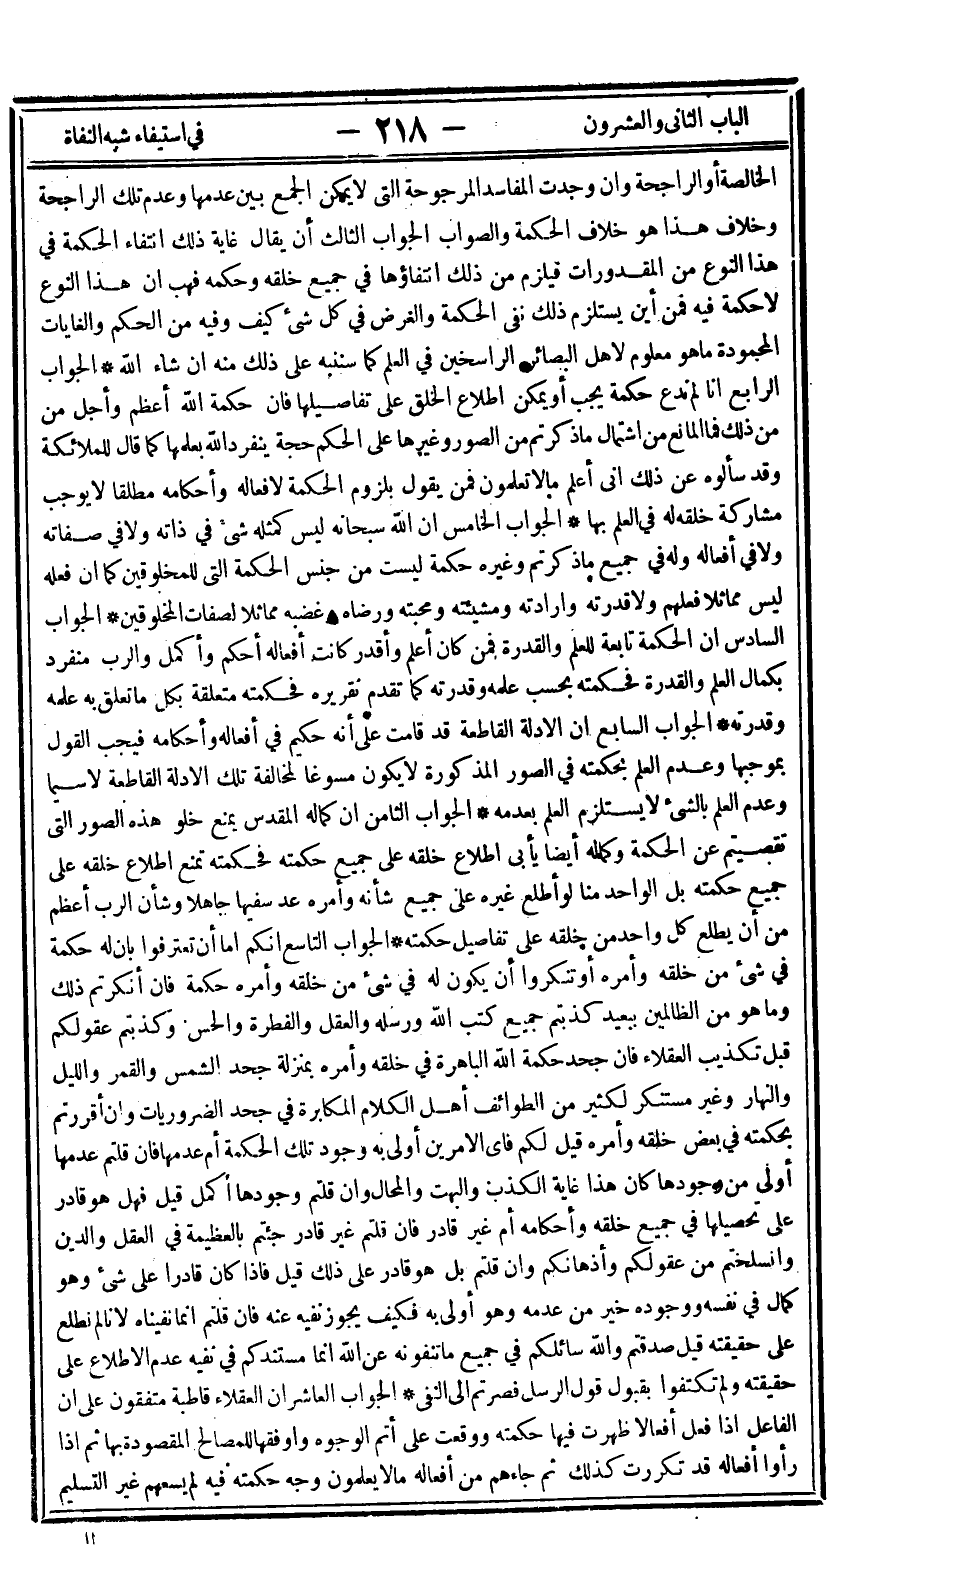 الباب الثانى والعشرون
— ٢١٨ —
فى استيفاء شبه النفاة
الخالصة أو الراجحة وان وجدت المفاسد المرجوحة التى لا يمكن الجمع بين عدمها وعدم تلك الراجحة
وخلاف هذا هو خلاف الحكمة والصواب الجواب الثالث أن يقال غاية ذلك انتفاء الحكمة في
هذا النوع من المقدورات فيلزم من ذلك انتفاؤها في جميع خلقه وحكمه فهب ان هذا النوع
لا حكمة فيه فمن أين يستلزم ذلك نفى الحكمة والغرض في كل شئ كيف وفيه من الحكم والغايات
المحمودة ماهو معلوم لاهل البصائر الراسخين في العلم كما سننبه على ذلك منه ان شاء الله * الجواب
الرابع انا لم ندع حكمة يجب أو يمكن اطلاع الخلق على تفاصيلها فان حكمة الله أعظم وأجل من
من ذلك فما المانع من اشتمال ماذكرتم من الصور وغيرها على الحكم حجة ينفرد الله بعلمها كما قال للملائكة
وقد سألوه عن ذلك انى أعلم مالا تعلمون فمن يقول بلزوم الحكمة لافعاله وأحكامه مطلقا لا يوجب
مشاركة خلقه له في العلم بها * الجواب الخامس ان الله سبحانه ليس كمثله شئ في ذاته ولا في صفاته
ولا في أفعاله وله في جميع ماذكرتم وغيره حكمة ليست من جنس الحكمة التى للمخلوقين كما ان فعله
ليس مماثلا فعلهم ولا قدرته وارادته ومشيئته ومحبته ورضاه وغضبه مماثلا لصفات المخلوقين * الجواب
السادس ان الحكمة تابعة للعلم والقدرة فمن كان أعلم وأقدر كانت أفعاله أحكم وأكمل والرب منفرد
بكمال العلم والقدرة فحكمته بحسب علمه وقدرته كما تقدم تقريره فحكمته متعلقة بكل ماتعلق به علمه
وقدرته * الجواب السابع ان الادلة القاطعة قد قامت على أنه حكيم في أفعاله وأحكامه فيجب القول
بموجبها وعدم العلم بحكمته في الصور المذكورة لا يكون مسوغا لمخالفة تلك الادلة القاطعة لاسيما
وعدم العلم بالشئ لا يستلزم العلم بعدمه * الجواب الثامن ان كماله المقدس يمنع خلو هذه الصور التى
نقصيتم عن الحكمة وكماله أيضا يأبى اطلاع خلقه على جميع حكمته فحكمته تمنع اطلاع خلقه على
جميع حكمته بل الواحد منا لو أطلع غيره على جميع شأنه وأمره عد سفيها جاهلا وشأن الرب أعظم
من أن يطلع كل واحد من خلقه على تفاصيل حكمته * الجواب التاسع انكم اما أن تعترفوا بان له حكمة
في شئ من خلقه وأمره أو تنكروا أن يكون له في شئ من خلقه وأمره حكمة فان أنكرتم ذلك
وماهو من الظالمين ببعيد كذبتم جميع كتب الله ورسله والعقل والفطرة والحس وكذبتم عقولكم
قبل تكذيب العقلاء فان جحد حكمة الله الباهرة في خلقه وأمره بمنزلة جحد الشمس والقمر والليل
والنهار وغير مستنكر لكثير من الطوائف أهل الكلام المكابرة في جحد الضروريات وان أقررتم
بحكمته في بعض خلقه وأمره قيل لكم فاى الامرين أولى به وجود تلك الحكمة أم عدمها فان قلتم عدمها
أولى من وجودها كان هذا غاية الكذب والبهت والمحال وان قلتم وجودها أكمل قيل فهل هو قادر
على تحصيلها في جميع خلقه وأحكامه أم غير قادر فان قلتم غير قادر جئتم بالعظيمة في العقل والدين
وانسلختم من عقولكم وأذهانكم وان قلتم بل هو قادر على ذلك قيل فاذا كان قادرا على شئ وهو
كمال في نفسه ووجوده خير من عدمه وهو أولى به فكيف يجوز نفيه عنه فان قلتم انما نفيناه لانا لم نطلع
على حقيقته قيل صدقتم والله سائلكم في جميع ماتنفونه عن الله انما مستندكم في نفيه عدم الاطلاع على
حقيقته ولم تكتفوا بقبول قول الرسل فصرتم الى النفى * الجواب العاشر ان العقلاء قاطبة متفقون على ان
الفاعل اذا فعل أفعالا ظهرت فيها حكمته ووقعت على أتم الوجوه وأوفقها للمصالح المقصودة بها ثم اذا
رأوا أفعاله قد تكررت كذلك ثم جاءهم من أفعاله مالا يعلمون وجه حكمته فيه لم يسعهم غير التسليم